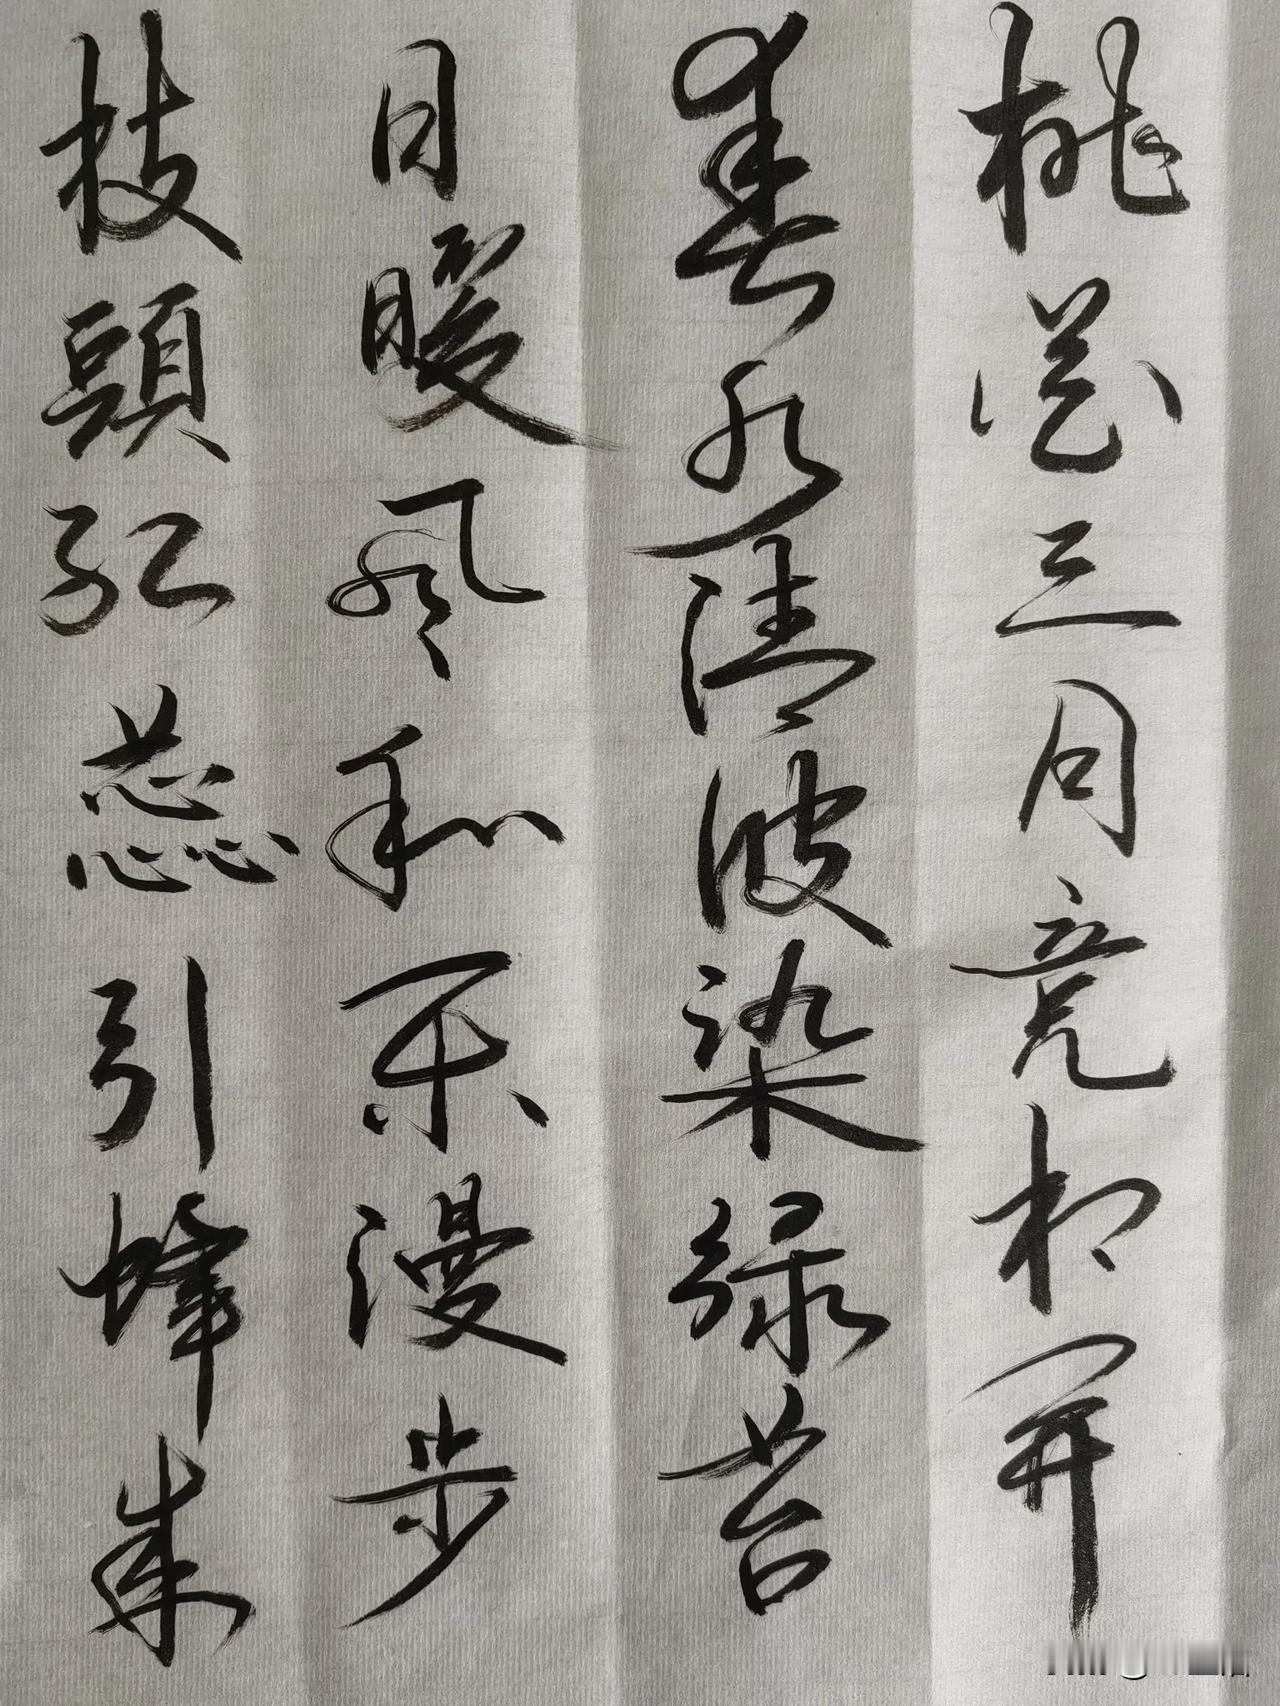 桃花三月竞相开
春水清波染绿苔
日暖风和乐漫步
枝頭红蕊引蜂来